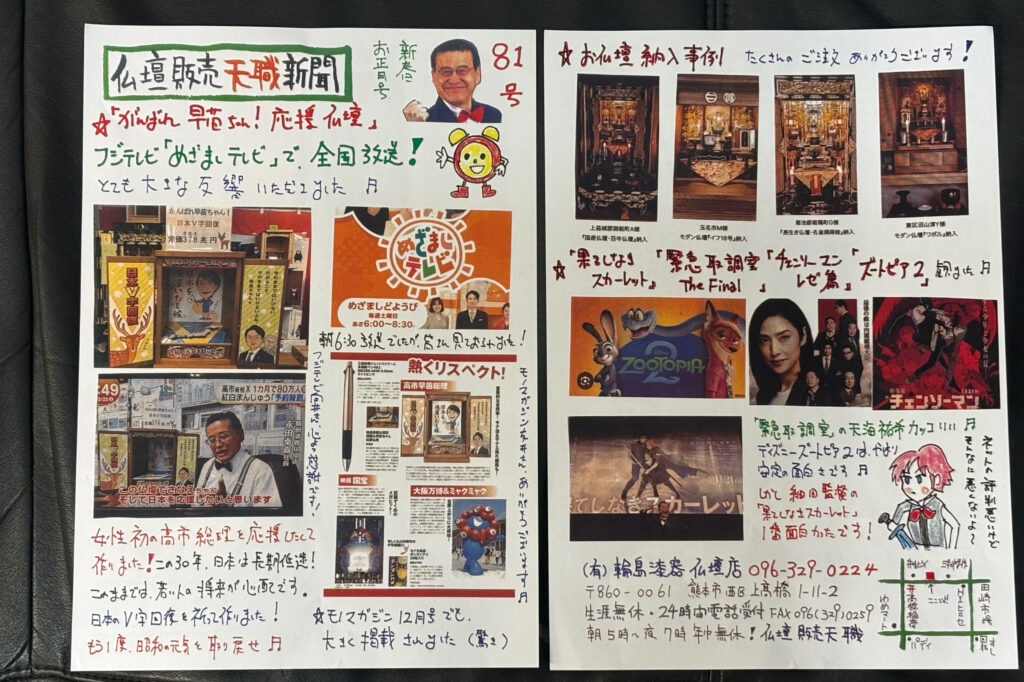 仏壇販売天職新聞
新春に
お正月号
81号
☆「がんばれ 早苗ちゃん！応援仏壇」
フジテレビ「めざましテレビ」で、全国放送！
とても大きな反響いただきました♬
がんばれ早苗ちゃん！
日本V字回復
定価378兆円
日本V字回復
めざましテレビ
めざましどようび
毎週土曜日
あさ6:00〜8:30
朝6:30放送でしたが、皆さん見ておられました！
4:49
高市首相X 1カ月で80万人
紅白まんじゅう「予約殺到
永田幸喜社長
この仏壇でさなえちゃん
そして日本を応援したいと思います
熱くリスペクト！
高市早苗総理
映画 国宝
大阪万博&ミャクミャク
モノマガジンさん、ありがとうございます♬
女性初の高市総理を応援したくて
作りました！この30年、日本は長期低迷！
このままでは、若い人の将来が心配です。
日本のV字回復を祈って作りました！
もう1度、昭和の元気を取り戻せ♬
☆モノマガジン12月号でも、
大きく掲載されました（驚き）
☆お仏壇納入事例 たくさんのご注文ありがとうございます！
上益城郡御船町A様
「国産仏壇・百年仏壇」納入
玉名市M様
モダン仏壇「イフ18号」納入
菊池郡菊陽町G様
「長生き仏壇・孔雀蒔絵」納入
東区沼山津Y様
モダン仏壇「ワポル」納入
☆「果てしなきスカーレット」「緊急取調室 The Final」「チェンソーマン レゼ篇」「ズートピア2」観ました♬
ZOOTOPIA 2
チェンソーマン
果てしなきスカーレット
「緊急取調室」の天海祐希カッコいい♬
ディズニーズートピア2は、やはり
安定の面白さです♬
しかし細田監督の
「果てしなきスカーレット」
1番面白かったです！
ネットの評判悪いけど
そんなに悪くないよ〜
（有）輪島漆器仏壇店 096-329-0224
〒860-0061 熊本市西区上高橋1-11-2
生涯無休・24時間電話受付 FAX096(329)0259
朝5時〜夜7時 年中無休！仏壇販売天職
ここ
田崎市場